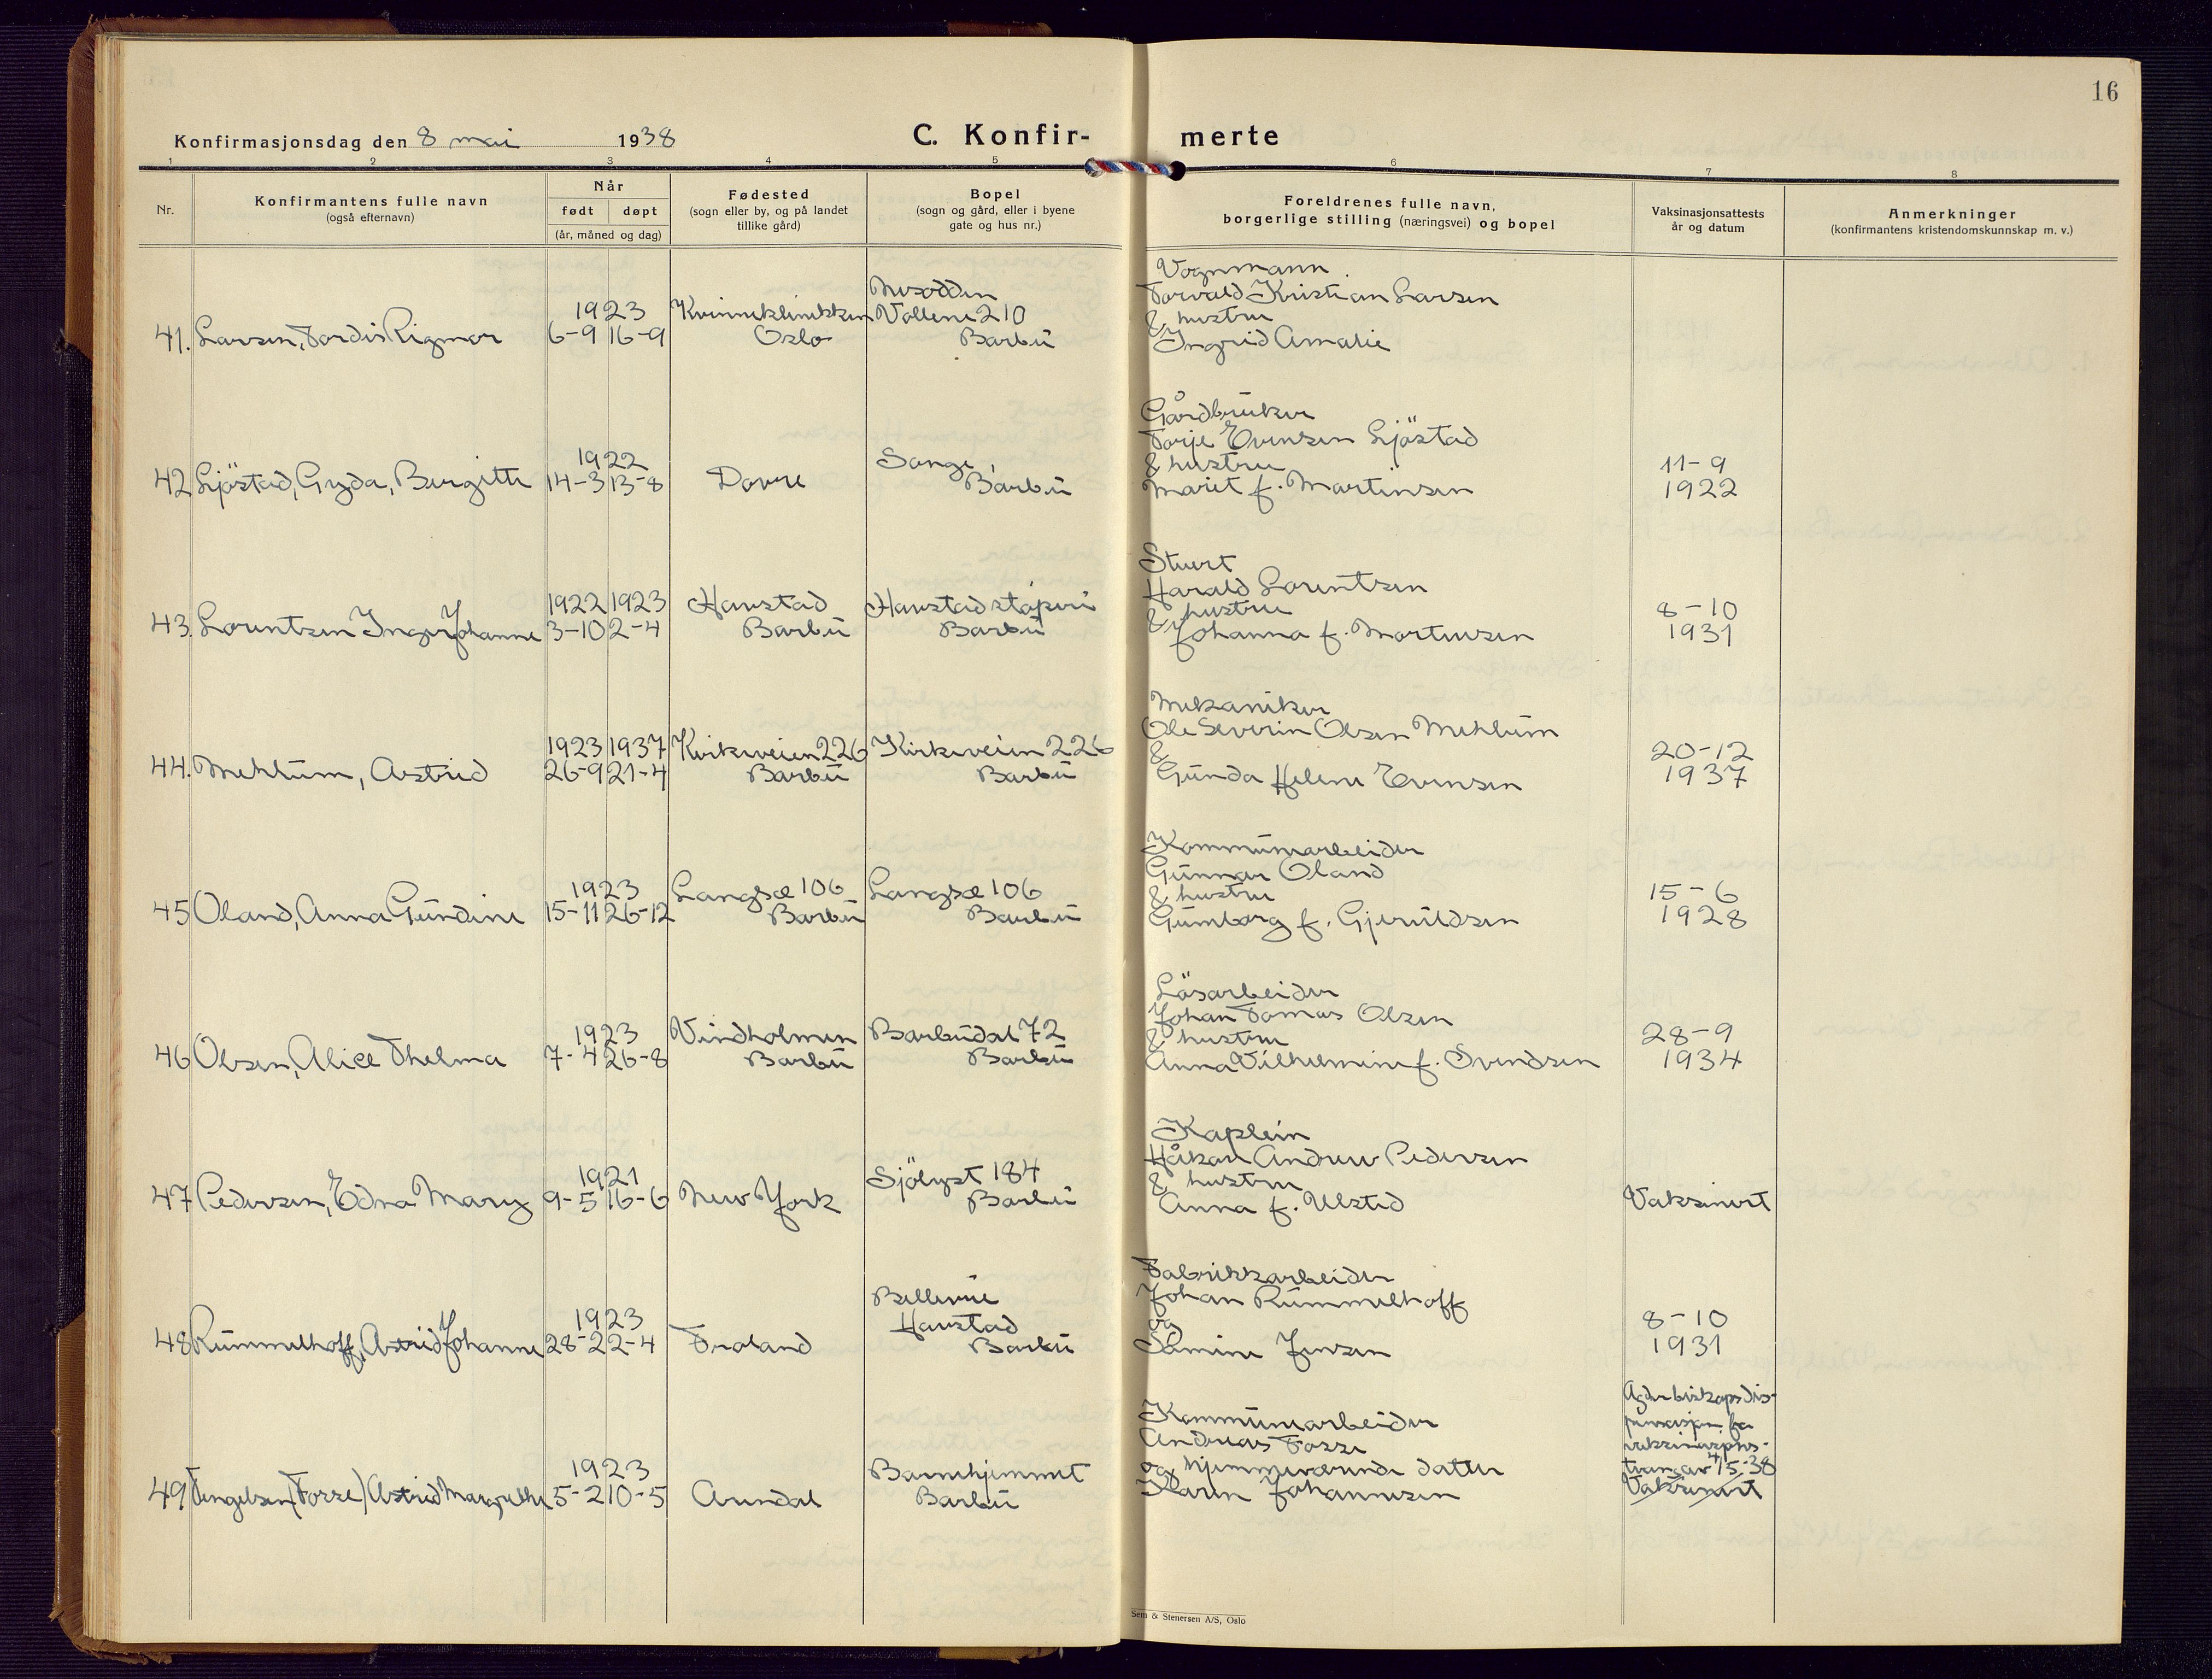 16
Konfirmasjonsdag den 8 mai 1938
C. Konfir-merte
1 2 3 4 5 6 7 8
Nr.
Konfirmantens fulle navn
(også efternavn)
Når
født døpt
(år, måned og dag)
Fødested
(sogn eller by, og på landet
tillike gård)
Bopel
(sogn og gård, eller i byene
gate og hus nr.)
Foreldrenes fulle navn,
borgerlige stilling (næringsvei) og bopel
Vaksinasjonsattests
år og datum
Anmerkninger
(konfirmantens kristendomskunnskap m. v.)
41. Larsen, Tordis Rigmor
1923
6-9 16-9
Kvinneklinikken
Oslo
Nesodden
Vollene 210
Barbu
Vognmann
Torvald Kristian Larsen
& hustru
Ingrid Amalie
42 Ljöstad, Gyda, Bergitte
1922
14-3 13-8
Dovre
Songe
Barbu
Gårdbruker
Torje Evensen Ljöstad
& hustru
Marit f. Martinsen
11-9
1922
43. Lorentsen Inger Johanne
1922 1923
3-10 2-4
Harstad
Barbu
Harstad støperi
Barbu
Stuert
Harald Lorentsen
& hustru
Johanna f. Mortensen
8-10
1931
44. Mehlum, Astrid
1923 1937
26-9 21-4
Kirkeveien 226
Barbu
Kirkeveien 226
Barbu
Mekaniker
Ole Severin Olsen Mehlum
&
Gunda Helene Evensen
20-12
1937
45 Oland, Anna Gundine
1923
15-11 26-12
Langsæ 106
Barbu
Langsæ 106
Barbu
Kommunearbeider
Gunnar Oland
& hustru
Gumborg f. Gjeruldsen
15-6
1928
46 Olsen, Alice Thelma
1923
7-4 26-8
Vindholmen
Barbu
Barbudal 72
Barbu
Lösarbeider
Johan Tomas Olsen
& hustru
Anna Vilhelmine f. Svendsen
28-9
1934
47 Pedersen, Edna Mary
1921
9-5 16-6
New York
Sjölyst 184
Barbu
Kaptein
Håkon Andrew Pedersen
& hustru
Anna f. Ulstid
Vaksinert
48 Rummelhoff, Astrid Johanne
1923
28-2 2-4
Froland
Bellevue
Harstad
Barbu
Fabrikkarbeider
Johan Rummelhoff
og
Samine Jensen
8-10
1931
49 Tengelsen (Fosse) Astrid Margrethe
1923
5-2 10-5
Arendal
Barnehjemmet
Barbu
Kommunearbeider
Andreas Fosse
og hjemmeværende datter
Karen Johannesen
Agder biskops dis-
pensasjon fra
vaksinasjons-
tvang av 4/5-38
Vaksinert
Sem & Stenersen A/S, Oslo